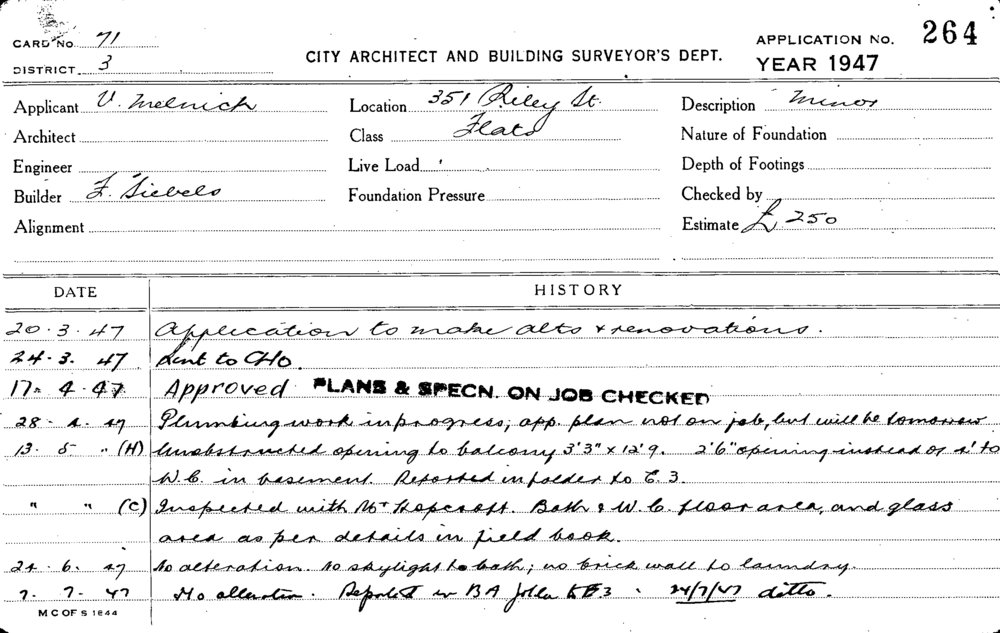 CARD No. 71
DISTRICT 3
CITY ARCHITECT AND BUILDING SURVEYOR'S DEPT.
APPLICATION No. 264
YEAR 1947
Applicant V. Melnick
Location 351 Riley St.
Description Minor
Architect
Class Flats
Nature of Foundation
Engineer
Live Load
Depth of Footings
Builder F. Siebels
Foundation Pressure
Checked by
Alignment
Estimate £ 250
DATE HISTORY
20.3.47 Application to make alts & renovations.
24.3.47 Sent to CHO.
17.4.47 Approved PLANS & SPECN. ON JOB CHECKED
28.4.47 Plumbing work in progress; app. plan not on job, but will be tomorrow
13.5 " (H) Unobstructed opening to balcony 3'3" x 12'9. 2'6" opening instead of 4' to
W.C. in basement. Reported in folder to E.3.
" " (C) Inspected with Mr Hopcroft. Bath & W.C. floor area, and glass
area as per details in field book.
24.6.47 No alteration. No skylight to bath; no brick wall to laundry.
7.7.47 No alteration. Reported in BA folder to E3. 24/7/47 ditto.
M C OF S 1844